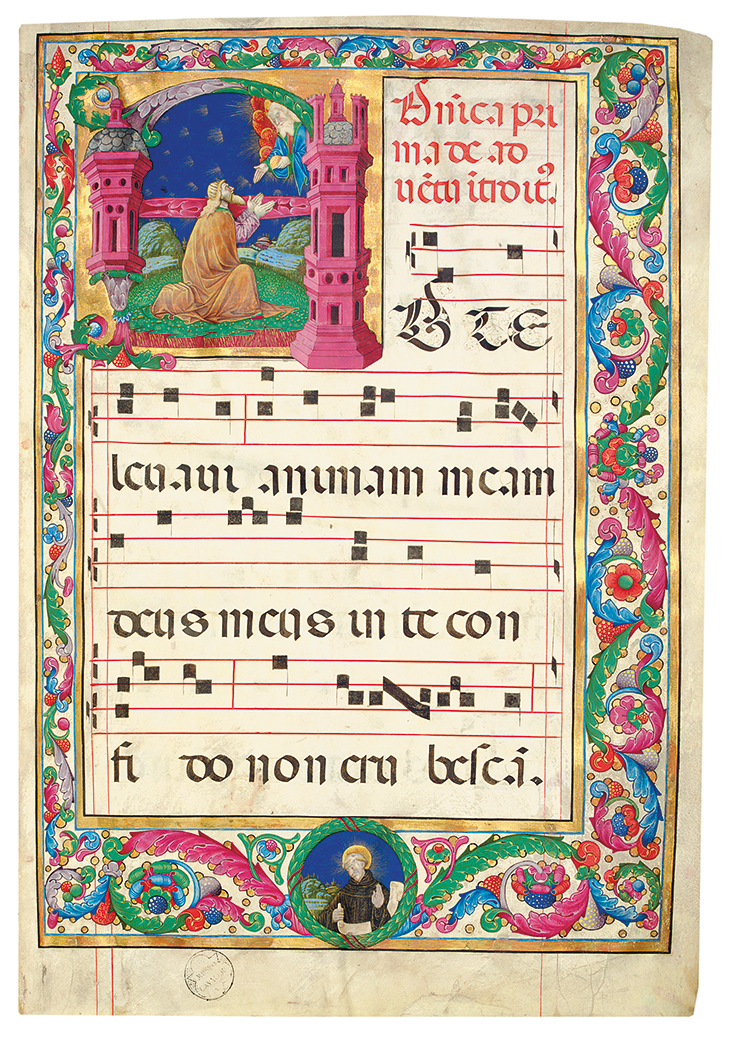 Dñica pri
ma de ad
uētu ītroitꝰ.
A D TE
leuaui animam meam
deus meus in te con
fi do non eru bescā.